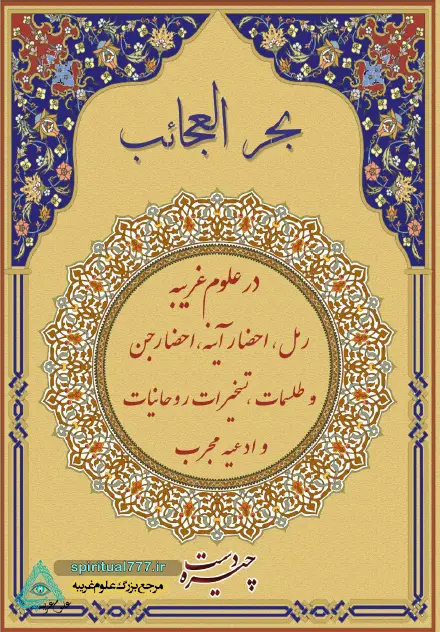 بحر العجائب
در علوم غریبه
رمل، احضار آینه، احضار جن
و طلسمات، تسخیرات روحانیات
و ادعیه مجرب
چیره دست
spiritual777.ir
مرجع بزرگ علوم غریبه